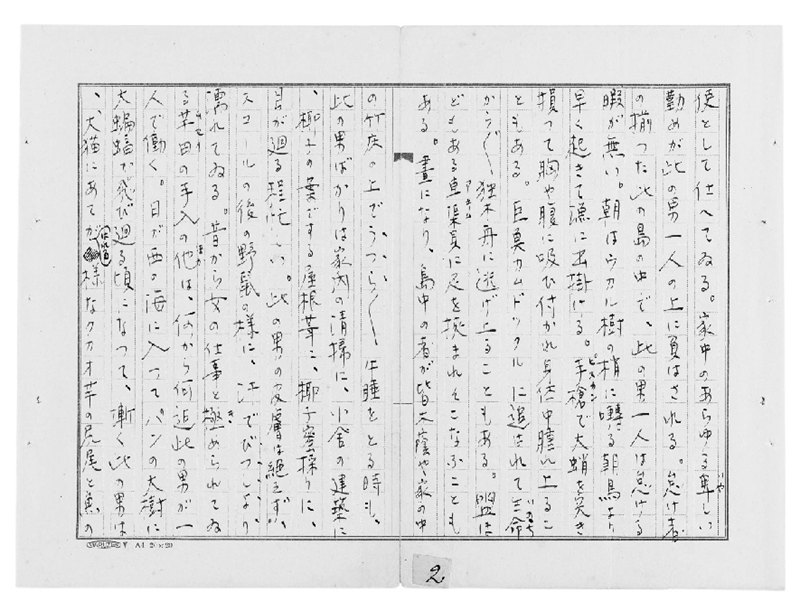 使として仕へてゐる。家中のあらゆる卑しい
いや
勤めが此の男一人の上に負はされる。怠け者
の揃つた此の島の中で、此の男一人は怠ける
暇が無い。朝はウカル樹の梢に囀る朝鳥より
早く起きて漁に出掛ける。手槍で大蛸を突き
ピスカン
損つて胸や腹に吸ひ付かれ身体中腫れ上るこ
ともある。巨魚カムドックルに追はれて生命
いのち
から〴〵独木舟に逃げ上ることもある。盥ほ
どもある車渠貝に足を挟まれそこなふことも
アキム
ある。晝になり、島中の者が皆木蔭や家の中
の竹床の上でうつら〳〵午睡をとる時も、
此の男ばかりは家内の清掃に、小舎の建築に
、椰子の葉でする屋根葺に、椰子蜜採りに、
目が廻る程忙しい。此の男の皮膚は絶えず、
スコールの後の野鼠の様に、汗でびつしより
濡れてゐる。昔から女の仕事と極められてゐ
き
る芋田の手入の他は、何から何迄此の男が一
ほか
人で働く。日が西の海に入つてパンの大樹に
大蝙蝠が飛び廻る頃になつて、漸く此の男は
、犬猫にあてが様なクカオ芋の尻尾と魚の
A4 20×20
2